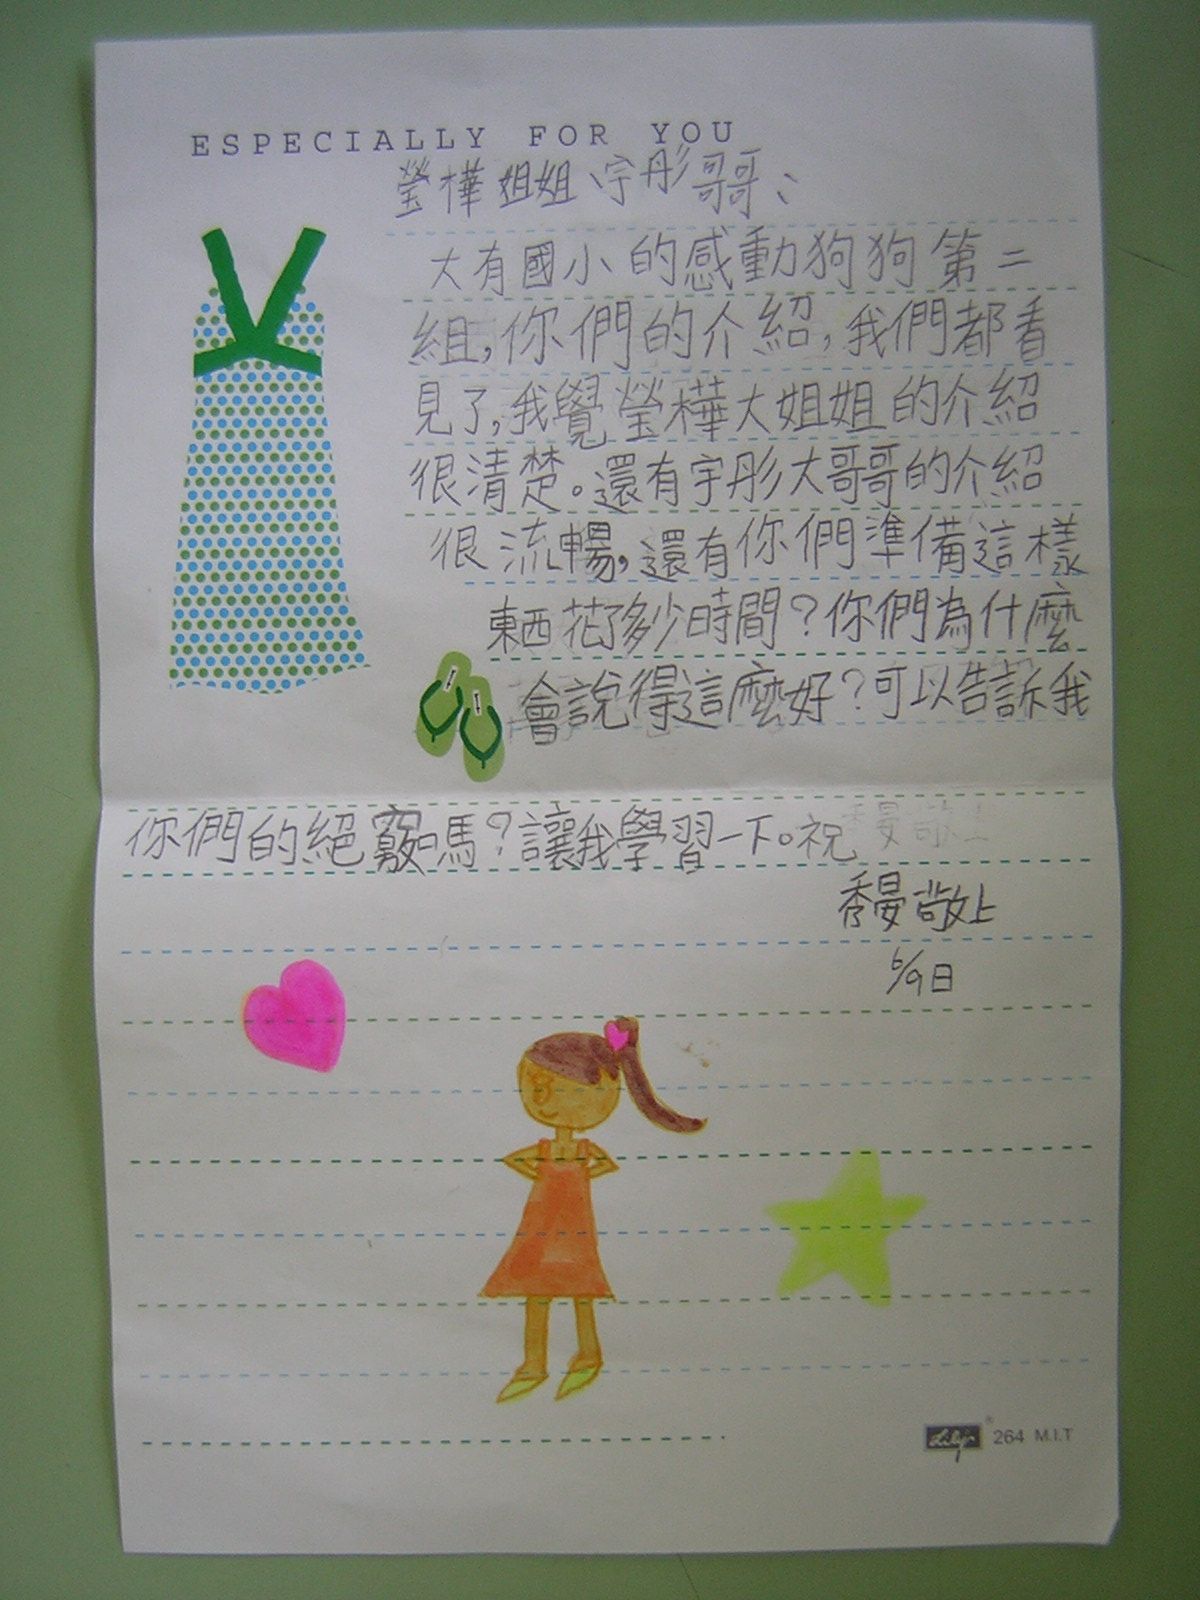 ESPECIALLY FOR YOU
瑩樺姐姐、宇彤哥哥:
大有國小的感動狗狗第二
組,你們的介紹,我們都看
見了,我覺瑩樺大姐姐的介紹
很清楚。還有宇彤大哥哥的介紹
很流暢,還有你們準備這樣
東西花了多少時間?你們為什麼
會說得這麼好?可以告訴我
你們的絕竅嗎?讓我學習一下。祝
秀晏敬上
6/9日
264 M.I.T